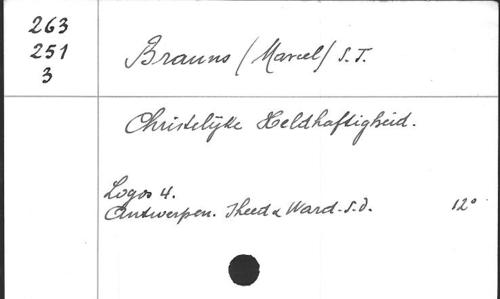 263
251
3
Brauns (Marcel) S.J.
Christelijke Heldhaftigheid.
Logos 4.
Antwerpen. Sheed & Ward. S.d. 12°